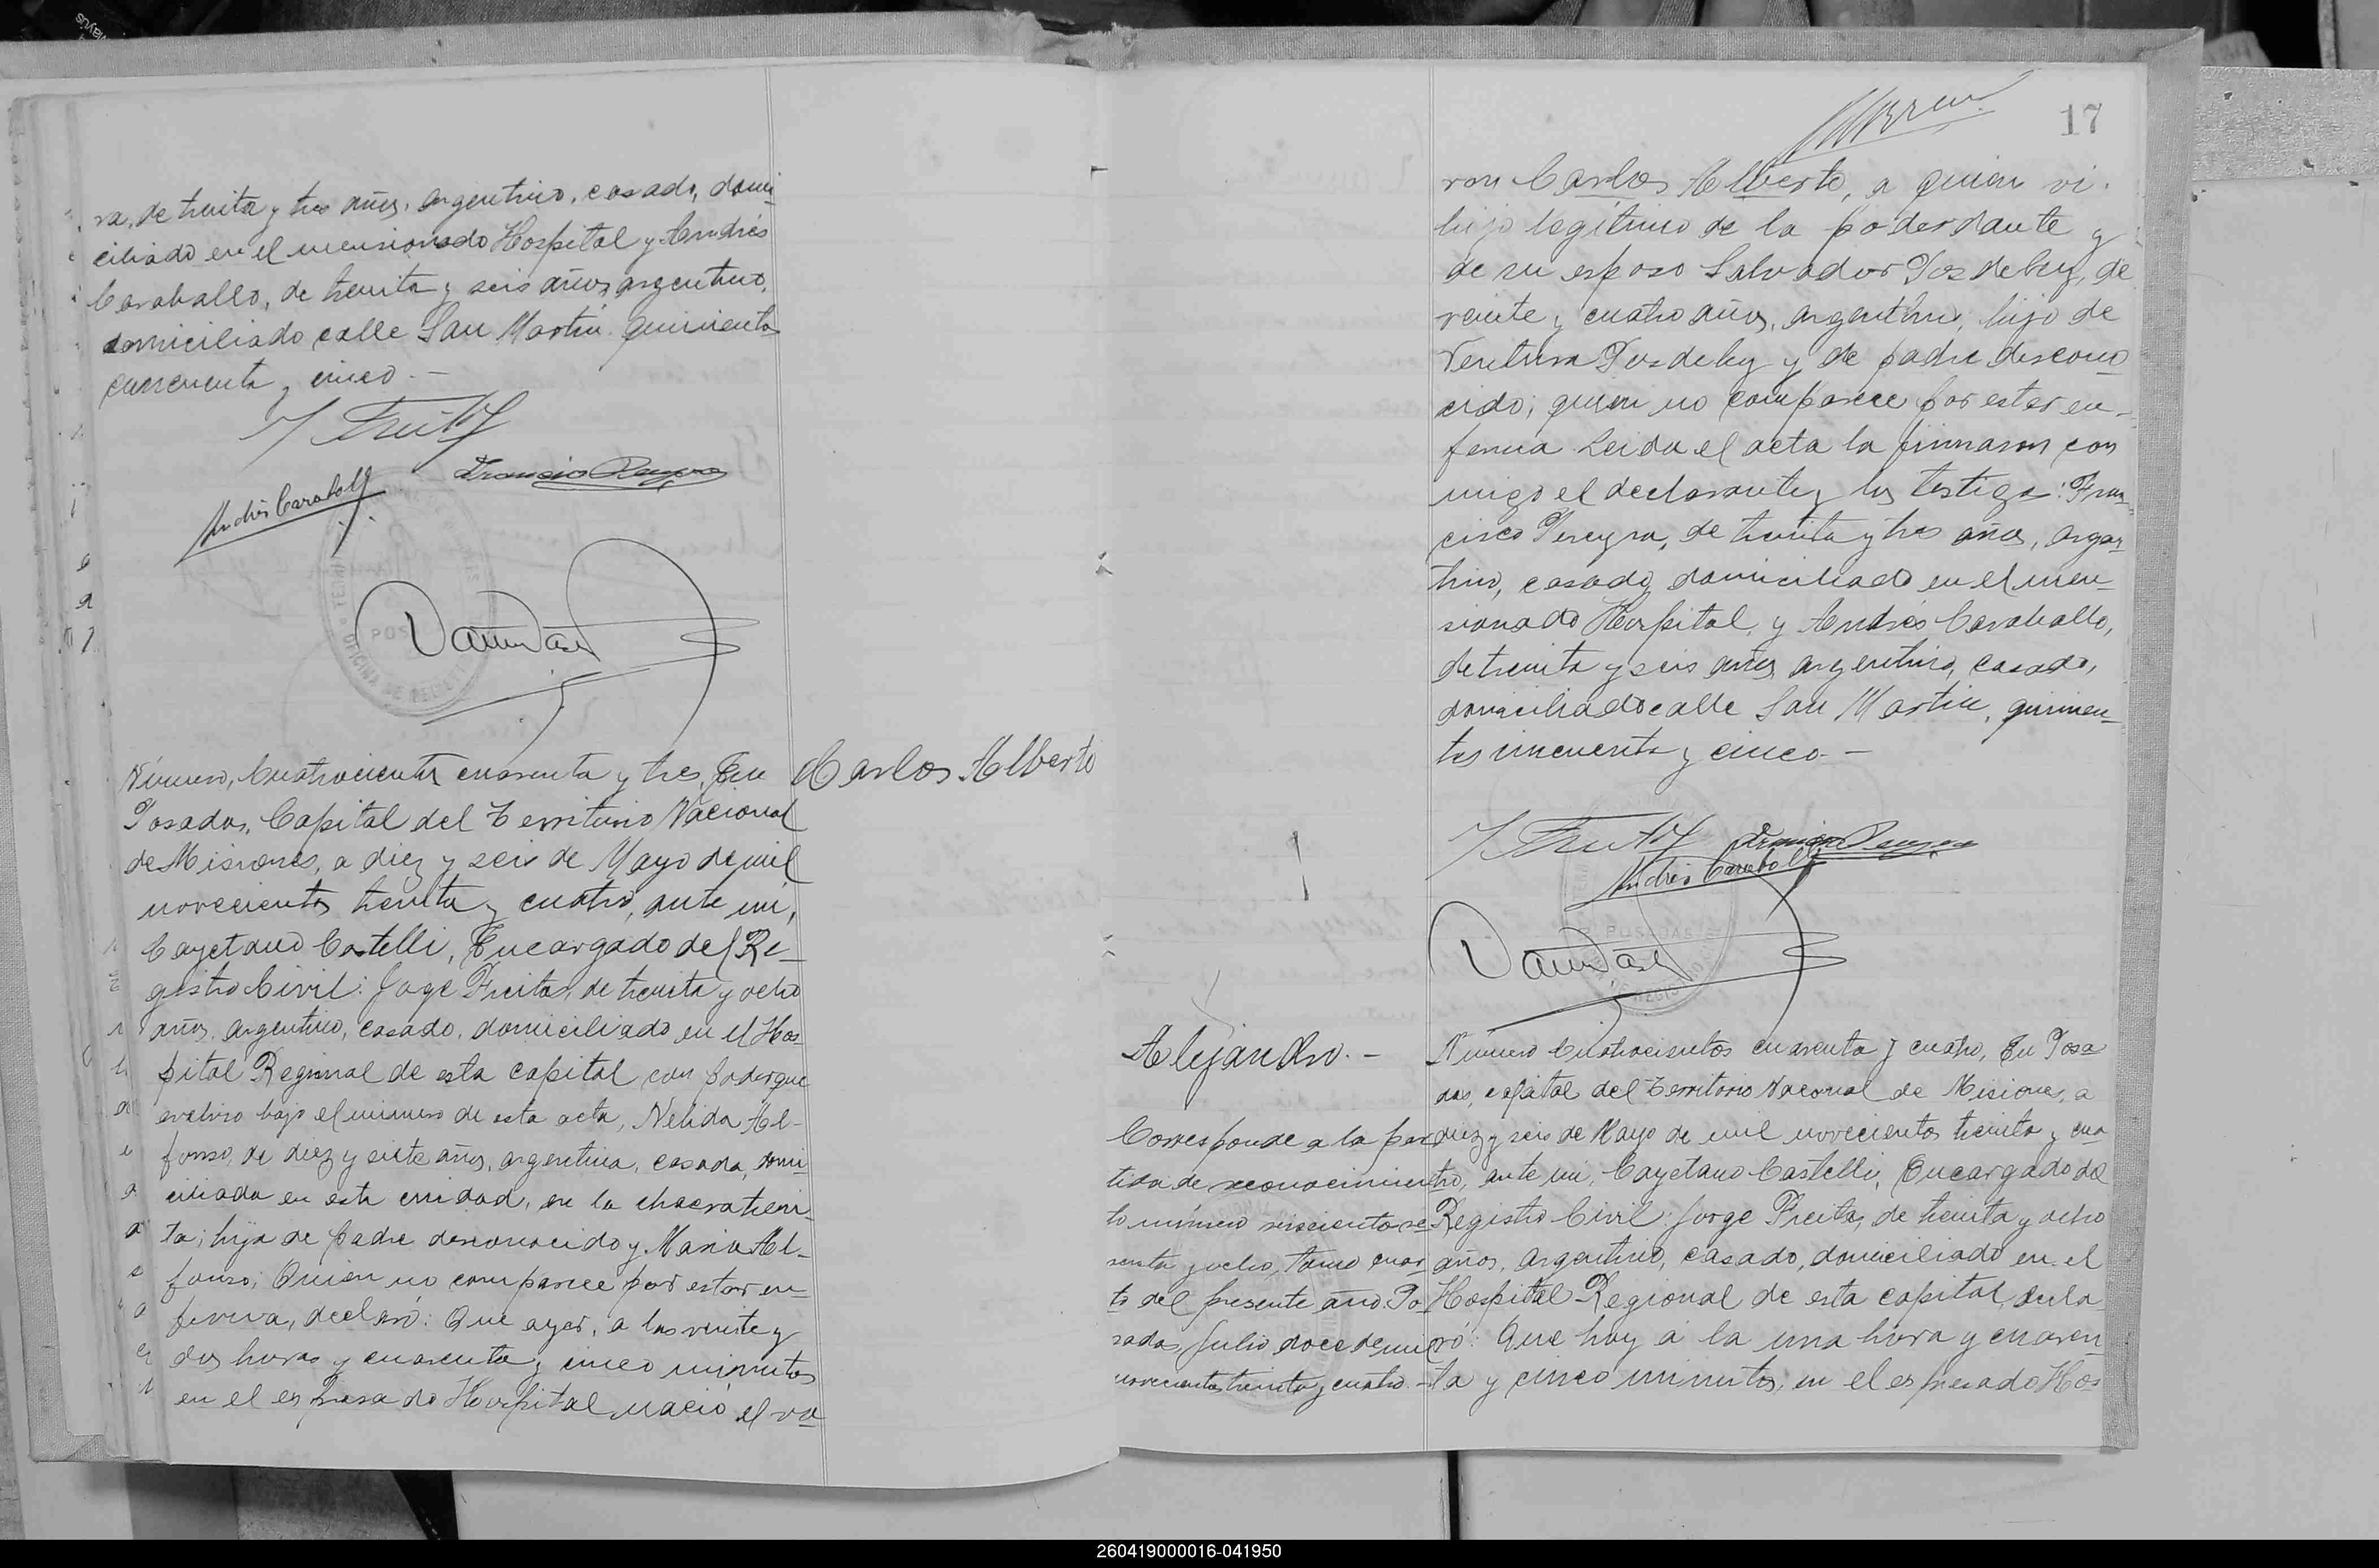 ra, de treinta y tres años, argentino, casado, domi
ciliado en el mensionado Hospital y Andrés
Caraballo, de treinta y seis años, argentino,
domiciliado calle San Martin quinientos
cincuenta y cinco.—
Andrés Caraballo
Francisco Pereyra
POS
OFICINA DE REGIST
Número, Cuatrocientos cuarenta y tres, En
Posadas, Capital del Territorio Nacional
de Misiones, a diez y seis de Mayo de mil
novecientos treinta y cuatro, ante mi,
Cayetano Castelli, Encargado del Re-
gistro Civil: Jorge Freitas, de treinta y ocho
años, argentino, casado, domiciliado en el Hos
pital Regional de esta capital con poder que
archivo bajo el número de esta acta, Nelida Al-
fonso, de diez y siete años, argentina, casada, domi
ciliada en esta ciudad, en la chacra trein-
ta; hija de padre desconocido y Maria Al-
fonso; Quien no comparece por estar en-
ferma, declaró: Que ayer, a las veinte y
dos horas y cuarenta y cinco minutos
en el espresado Hospital nació el va
Carlos Alberto
17
ron Carlos Alberto, a quien vi.
hijo legítimo de la poderdante y
de su esposo Salvador Posdeley, de
veinte y cuatro años, argentino, hijo de
Ventura Posdeley y de padre descono
cido; quien no comparece por estar en-
ferma Leida el acta la firmaron con
migo el declarante y los testigos: Fran-
cisco Pereyra, de treinta y tres años, argen
tino, casado, domiciliado en el men-
sionado Hospital, y Andrés Caraballo,
de treinta y seis años, argentino, casado,
domiciliado calle San Martin, quinien-
tos cincuenta y cinco.—
Francisco Pereyra
Andrés Caraballo
POSADAS
Alejandro.—
Corresponde a la par
tida de reconocimien
to número seiscientos se
senta y ocho, tomo cuar
to del presente año. Po
sadas, Julio doce de mil
novecientos treinta y cuatro.—
Número Cuatrocientos cuarenta y cuatro, En Posa
das, capital del Territorio Nacional de Misiones, a
diez y seis de Mayo de mil novecientos treinta y cua
tro, ante mi, Cayetano Castelli, Encargado del
Registro Civil: Jorge Freitas, de treinta y ocho
años, argentino, casado, domiciliado en el
Hospital Regional de esta capital, decla
ró: Que hoy a la una hora y cuaren
ta y cinco minutos, en el espresado Hos
260419000016-041950